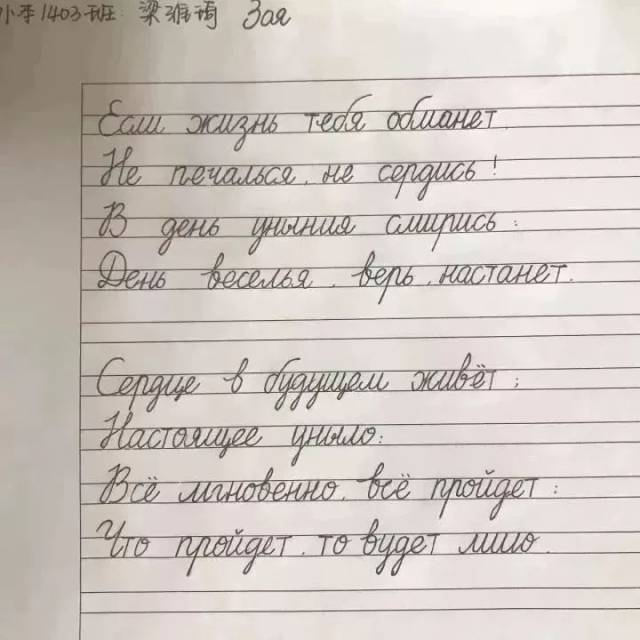 小李1403班: 梁雅琦 Зая
Если жизнь тебя обманет,
Не печалься, не сердись!
В день уныния смирись:
День веселья, верь, настанет.
Сердце в будущем живёт;
Настоящее уныло:
Всё мгновенно, всё пройдет;
Что пройдет, то будет мило.